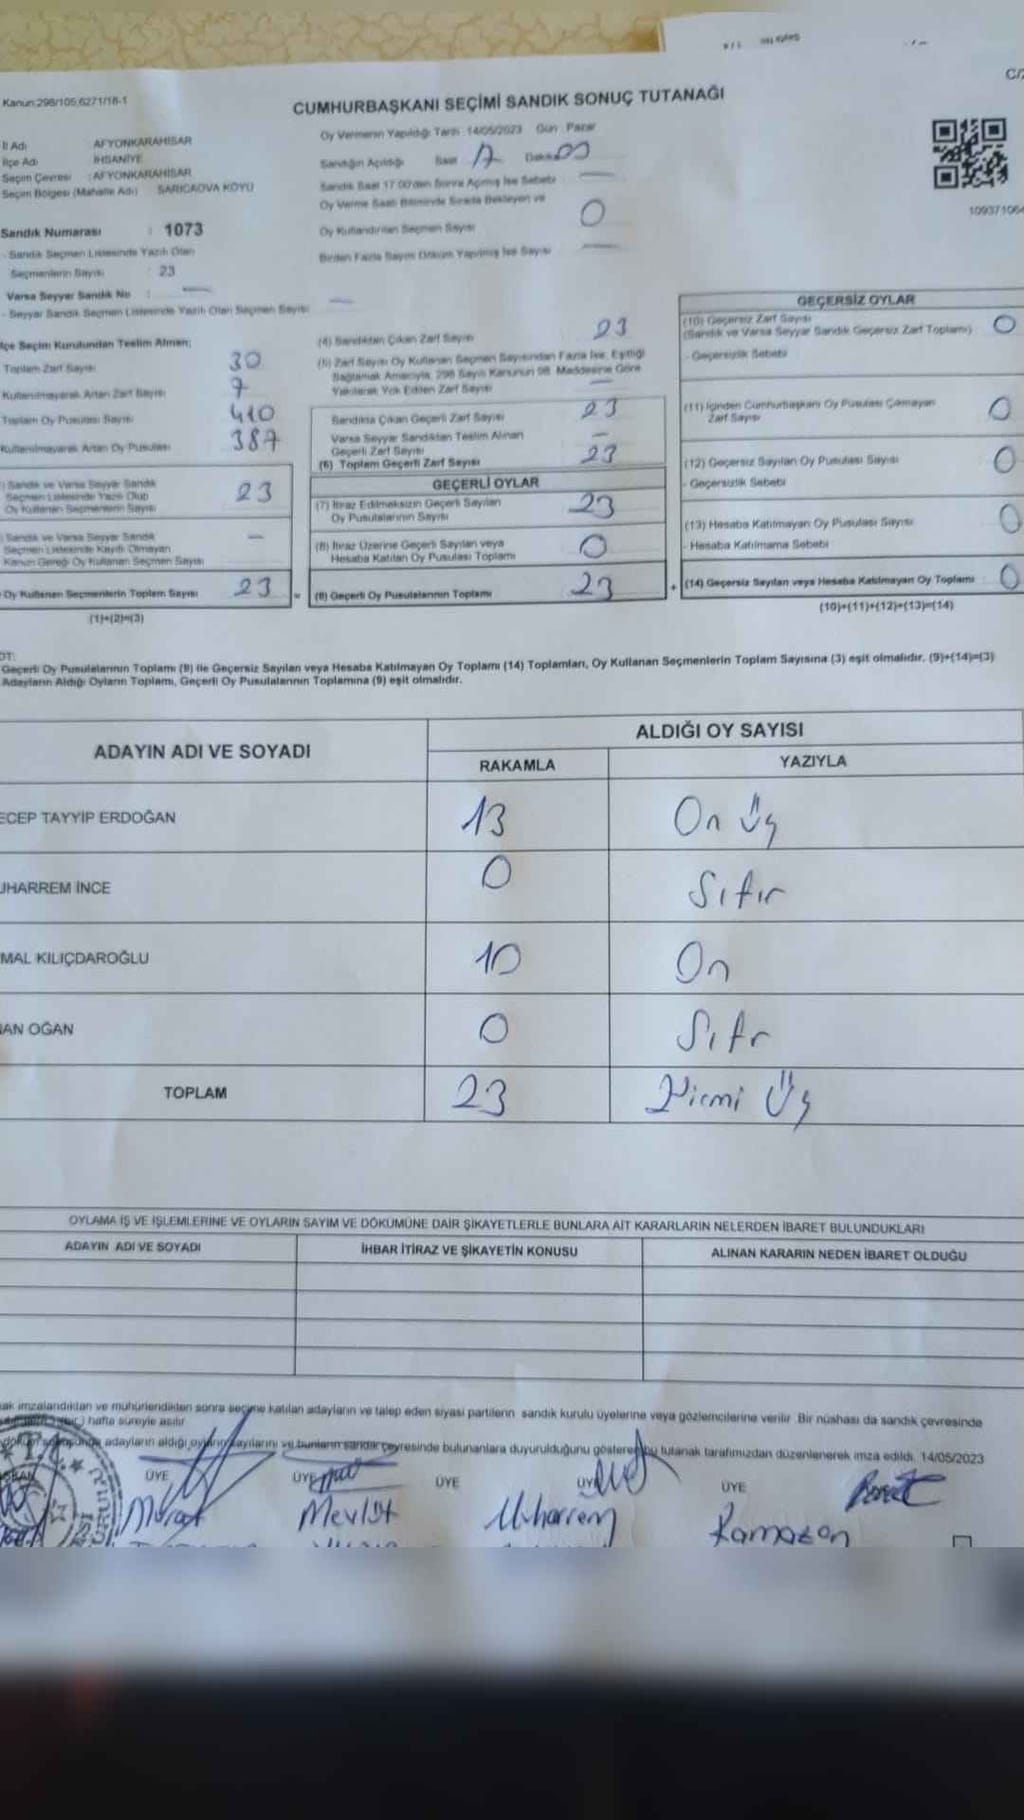 Kanun:298/105,6271/18-1
CUMHURBAŞKANI SEÇİMİ SANDIK SONUÇ TUTANAĞI
C/2
İl Adı AFYONKARAHİSAR
İlçe Adı İHSANİYE
Seçim Çevresi : AFYONKARAHİSAR
Seçim Bölgesi (Mahalle Adı) SARICAOVA KÖYÜ
Oy Vermenin Yapıldığı Tarih 14/05/2023 Gün Pazar
Sandığın Açıldığı Saat 17 Dakika
Sandık Saat 17.00'den Sonra Açılmış İse Sebebi —
Oy Verme Saati Bitiminde Sırada Bekleyen ve
Oy Kullandırılan Seçmen Sayısı 0
Birden Fazla Sayım Döküm Yapılmış İse Sayısı —
109371064
Sandık Numarası : 1073
- Sandık Seçmen Listesinde Yazılı Olan
Seçmenlerin Sayısı : 23
Varsa Seyyar Sandık No : —
- Seyyar Sandık Seçmen Listesinde Yazılı Olan Seçmen Sayısı —
İlçe Seçim Kurulundan Teslim Alınan;
Toplam Zarf Sayısı 30
Kullanılmayarak Artan Zarf Sayısı 7
Toplam Oy Pusulası Sayısı 410
Kullanılmayarak Artan Oy Pusulası 387
Sandık ve Varsa Seyyar Sandık
Seçmen Listesinde Yazılı Olup
Oy Kullanan Seçmenlerin Sayısı 23
Sandık ve Varsa Seyyar Sandık
Seçmen Listesinde Kayıtlı Olmayan
Kanun Gereği Oy Kullanan Seçmen Sayısı —
Oy Kullanan Seçmenlerin Toplam Sayısı 23
(1)+(2)=(3)
(4) Sandıktan Çıkan Zarf Sayısı 23
(5) Zarf Sayısı Oy Kullanan Seçmen Sayısından Fazla İse, Eşitliği
Sağlamak Amacıyla, 298 Sayılı Kanunun 98. Maddesine Göre
Yakılarak Yok Edilen Zarf Sayısı —
Sandıkta Çıkan Geçerli Zarf Sayısı 23
Varsa Seyyar Sandıktan Teslim Alınan
Geçerli Zarf Sayısı —
(6) Toplam Geçerli Zarf Sayısı 23
GEÇERLİ OYLAR
(7) İtiraz Edilmeksizin Geçerli Sayılan
Oy Pusulalarının Sayısı 23
(8) İtiraz Üzerine Geçerli Sayılan veya
Hesaba Katılan Oy Pusulası Toplamı 0
(9) Geçerli Oy Pusulalarının Toplamı 23
GEÇERSİZ OYLAR
(10) Geçersiz Zarf Sayısı
(Sandık ve Varsa Seyyar Sandık Geçersiz Zarf Toplamı) 0
- Geçersizlik Sebebi
(11) İçinden Cumhurbaşkanı Oy Pusulası Çıkmayan
Zarf Sayısı 0
(12) Geçersiz Sayılan Oy Pusulası Sayısı 0
- Geçersizlik Sebebi
(13) Hesaba Katılmayan Oy Pusulası Sayısı 0
- Hesaba Katılmama Sebebi
(14) Geçersiz Sayılan veya Hesaba Katılmayan Oy Toplamı 0
(10)+(11)+(12)+(13)=(14)
OT:
Geçerli Oy Pusulalarının Toplamı (9) ile Geçersiz Sayılan veya Hesaba Katılmayan Oy Toplamı (14) Toplamları, Oy Kullanan Seçmenlerin Toplam Sayısına (3) eşit olmalıdır. (9)+(14)=(3)
Adayların Aldığı Oyların Toplamı, Geçerli Oy Pusulalarının Toplamına (9) eşit olmalıdır.
ADAYIN ADI VE SOYADI
ALDIĞI OY SAYISI
RAKAMLA YAZIYLA
ECEP TAYYİP ERDOĞAN 13 On Üç
UHARREM İNCE 0 Sıfır
MAL KILIÇDAROĞLU 10 On
NAN OĞAN 0 Sıfr
TOPLAM 23 Yirmi Üç
OYLAMA İŞ VE İŞLEMLERİNE VE OYLARIN SAYIM VE DÖKÜMÜNE DAİR ŞİKAYETLERLE BUNLARA AİT KARARLARIN NELERDEN İBARET BULUNDUKLARI
ADAYIN ADI VE SOYADI İHBAR İTİRAZ VE ŞİKAYETİN KONUSU ALINAN KARARIN NEDEN İBARET OLDUĞU
ak imzalandıktan ve mühürlendikten sonra seçime katılan adayların ve talep eden siyasi partilerin sandık kurulu üyelerine veya gözlemcilerine verilir. Bir nüshası da sandık çevresinde
hafta süreyle asılır
adayların aldığı oyların sayılarını ve bunların sandık çevresinde bulunanlara duyurulduğunu gösteren bu tutanak tarafımızdan düzenlenerek imza edildi. 14/05/2023
ÜYE ÜYE ÜYE ÜYE ÜYE
Murat Mevlüt Muharrem Ramazan